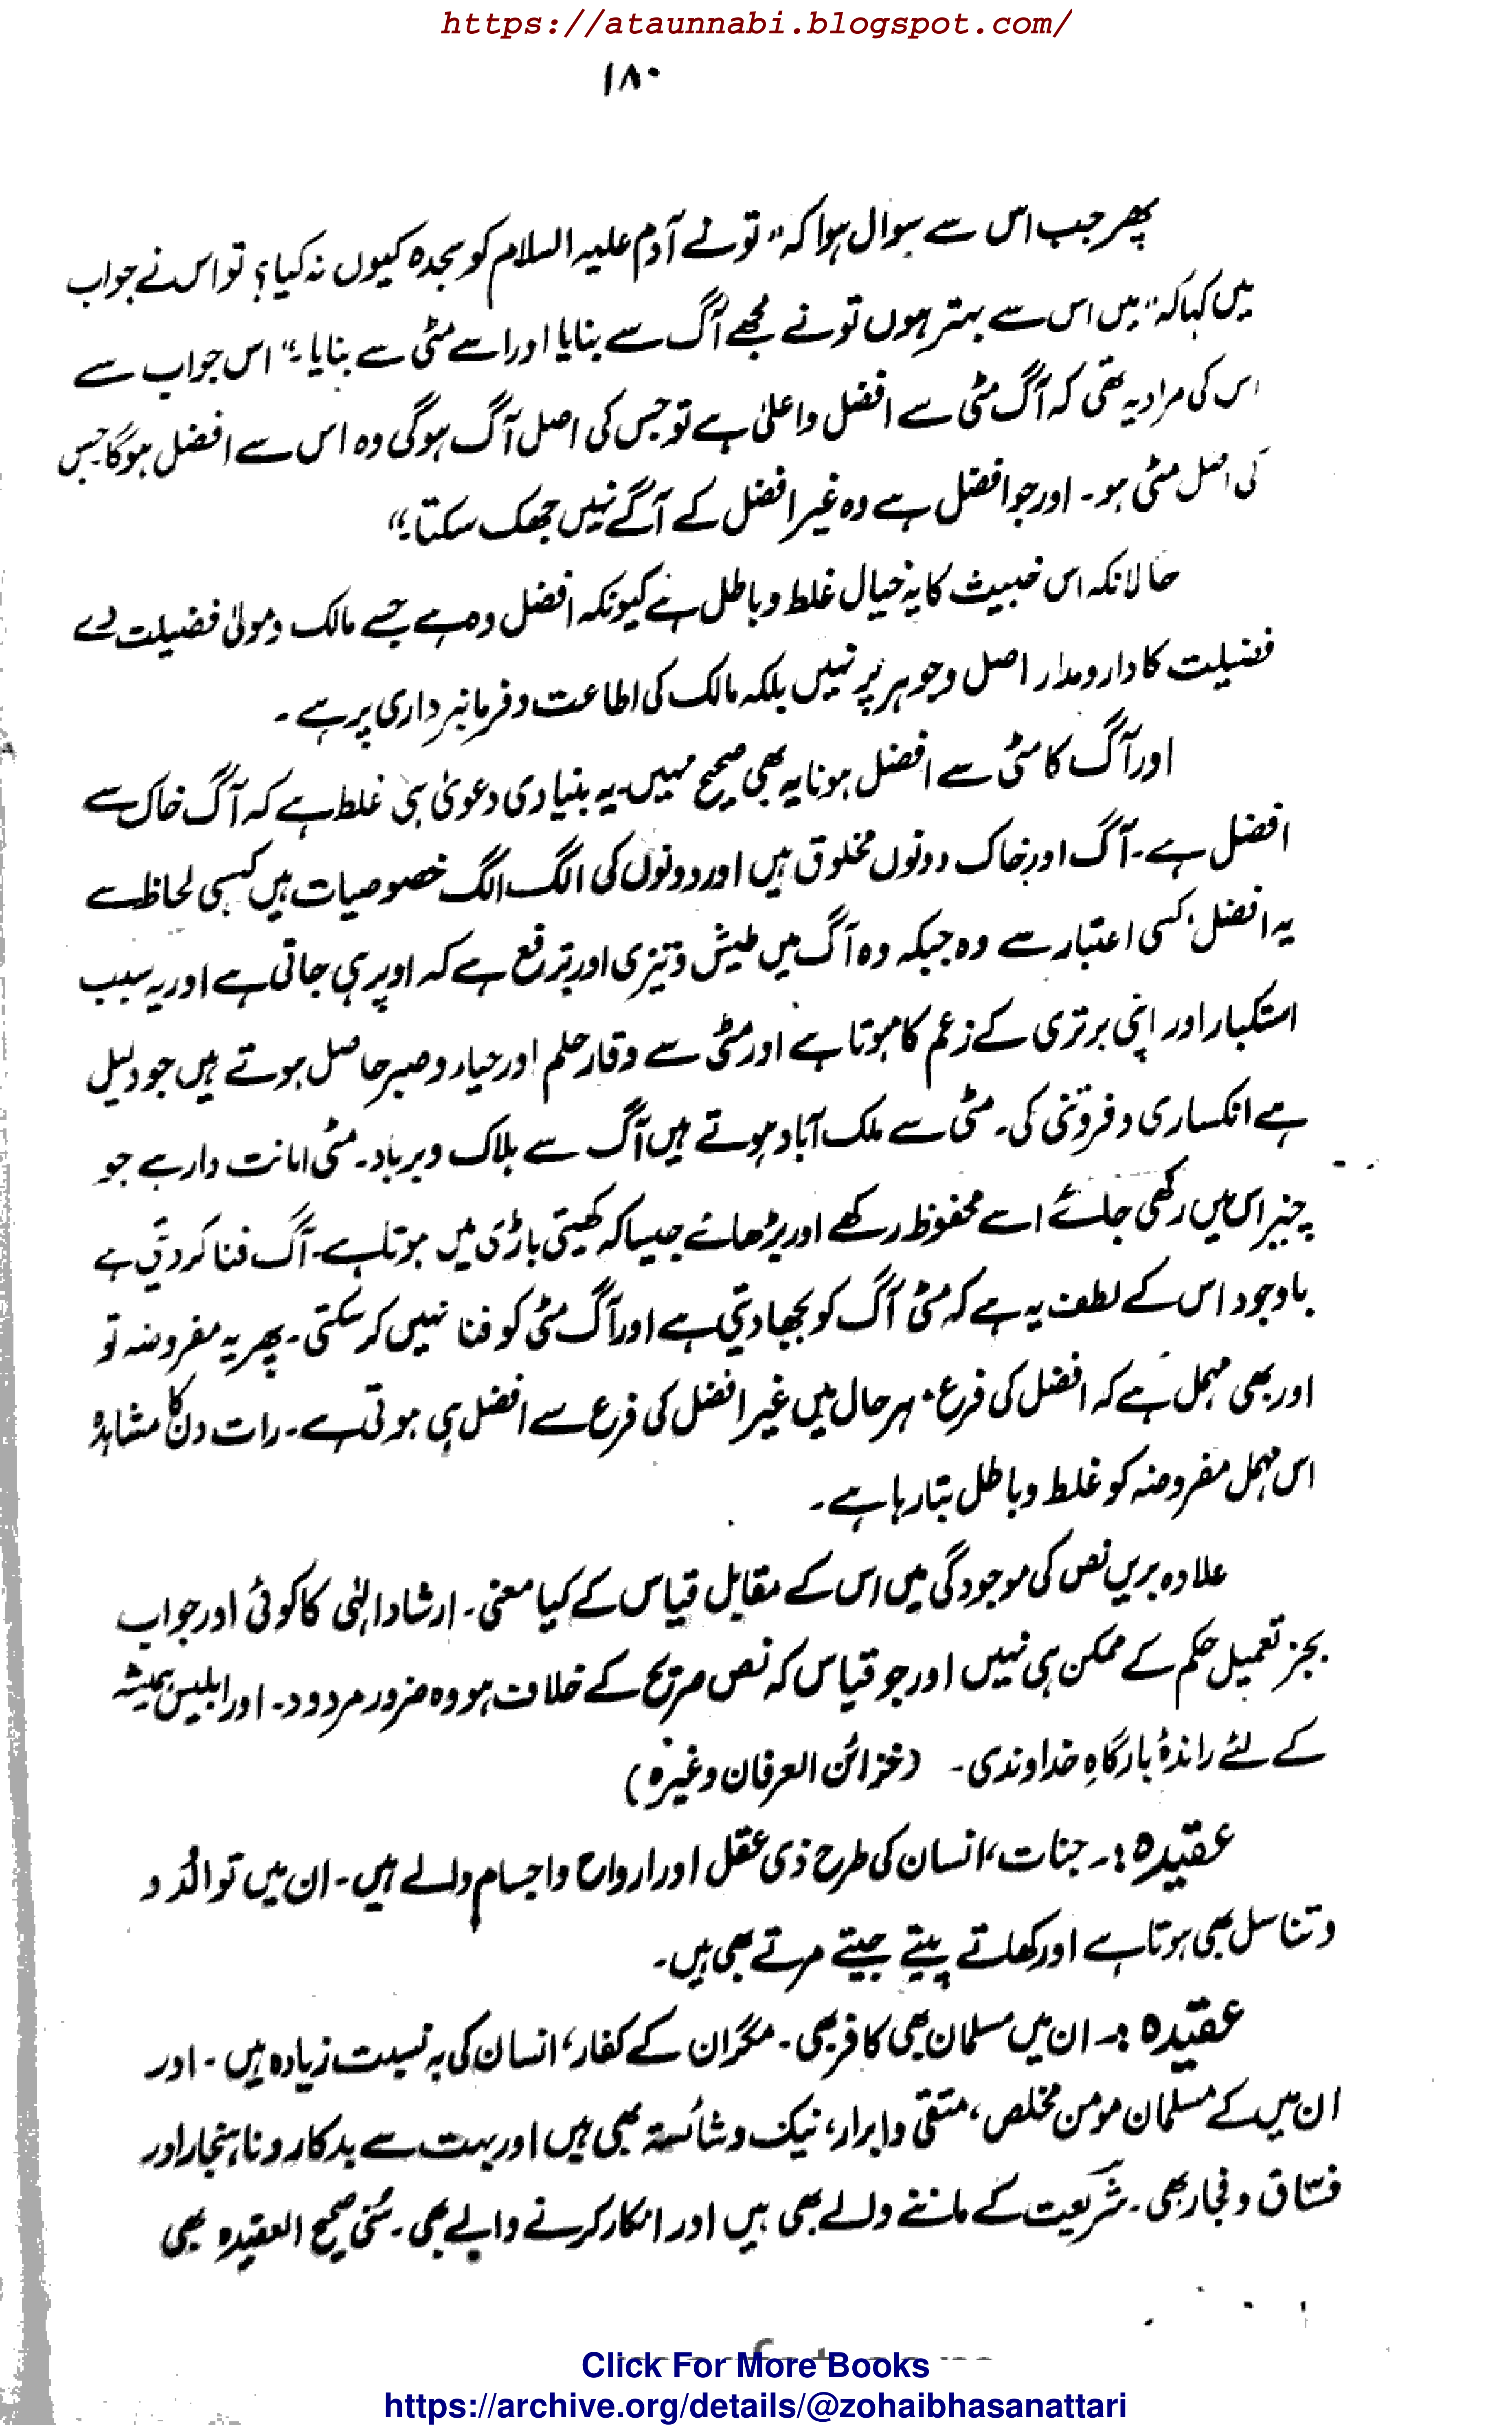 https://ataunnabi.blogspot.com/
۱۸۰
پھر جب اس سے سوال ہوا کہ "تونے آدم علیہ السلام کو سجدہ کیوں نہ کیا؟ تو اس نے جواب
میں کہا کہ "میں اس سے بہتر ہوں تونے مجھے آگ سے بنایا اور اسے مٹی سے بنایا۔" اس جواب سے
اس کی مراد یہ تھی کہ آگ مٹی سے افضل و اعلیٰ ہے تو جس کی اصل آگ ہوگی وہ اس سے افضل ہوگا جس
کی اصل مٹی ہو۔ اور جو افضل ہے وہ غیر افضل کے آگے نہیں جھک سکتا۔"
حالانکہ اس خبیث کا یہ خیال غلط و باطل ہے کیونکہ افضل وہ ہے جسے مالک و مولیٰ فضیلت دے
فضیلت کا دارومدار اصل و جوہر پر نہیں بلکہ مالک کی اطاعت و فرمانبرداری پر ہے۔
اور آگ کا مٹی سے افضل ہونا یہ بھی صحیح نہیں۔ یہ بنیادی دعویٰ ہی غلط ہے کہ آگ خاک سے
افضل ہے۔ آگ اور خاک دونوں مخلوق ہیں اور دونوں کی الگ الگ خصوصیات ہیں کسی لحاظ سے
یہ افضل، کسی اعتبار سے وہ جبکہ وہ آگ میں طیش و تیزی اور ترفع ہے کہ اوپر ہی جاتی ہے اور یہ سبب
استکبار اور اپنی برتری کے زعم کا ہوتا ہے اور مٹی سے وقار حلم اور حیاء و صبر حاصل ہوتے ہیں جو دلیل
ہے انکساری و فروتنی کی۔ مٹی سے ملک آباد ہوتے ہیں آگ سے ہلاک و برباد۔ مٹی امانت دار ہے جو
چیز اس میں رکھی جائے اسے محفوظ رکھے اور بڑھائے جیسا کہ کھیتی باڑی میں ہوتا ہے۔ آگ فنا کر دیتی ہے
باوجود اس کے لطف یہ ہے کہ مٹی آگ کو بجھا دیتی ہے اور آگ مٹی کو فنا نہیں کر سکتی۔ پھر یہ مفروضہ تو
اور بھی مہمل ہے کہ افضل کی فرع، ہر حال میں غیر افضل کی فرع سے افضل ہی ہوتی ہے۔ رات دن کا مشاہدہ
اس مہمل مفروضہ کو غلط و باطل بتا رہا ہے۔
علاوہ بریں نص کی موجودگی میں اس کے مقابل قیاس کے کیا معنی۔ ارشاد الٰہی کا کوئی اور جواب
بجز تعمیل حکم کے ممکن ہی نہیں اور جو قیاس کہ نص صریح کے خلاف ہو وہ ضرور مردود۔ اور ابلیس ہمیشہ
کے لئے راندۂ بارگاہِ خداوندی۔ (خزائن العرفان وغیرہ)
عقیدہ :۔ جنات، انسان کی طرح ذی عقل اور ارواح و اجسام والے ہیں۔ ان میں توالُد و
و تناسل بھی ہوتا ہے اور کھاتے پیتے جیتے مرتے بھی ہیں۔
عقیدہ :۔ ان میں مسلمان بھی کافر بھی۔ مگر ان کے کفار، انسان کی بہ نسبت زیادہ ہیں۔ اور
ان میں کے مسلمان مومن مخلص، متقی و ابرار، نیک و شائستہ بھی ہیں اور بہت سے بدکار و ناہنجار اور
فسّاق و فجار بھی۔ شریعت کے ماننے والے بھی ہیں اور انکار کرنے والے بھی۔ سُنّی صحیح العقیدہ بھی
Click For More Books
https://archive.org/details/@zohaibhasanattari